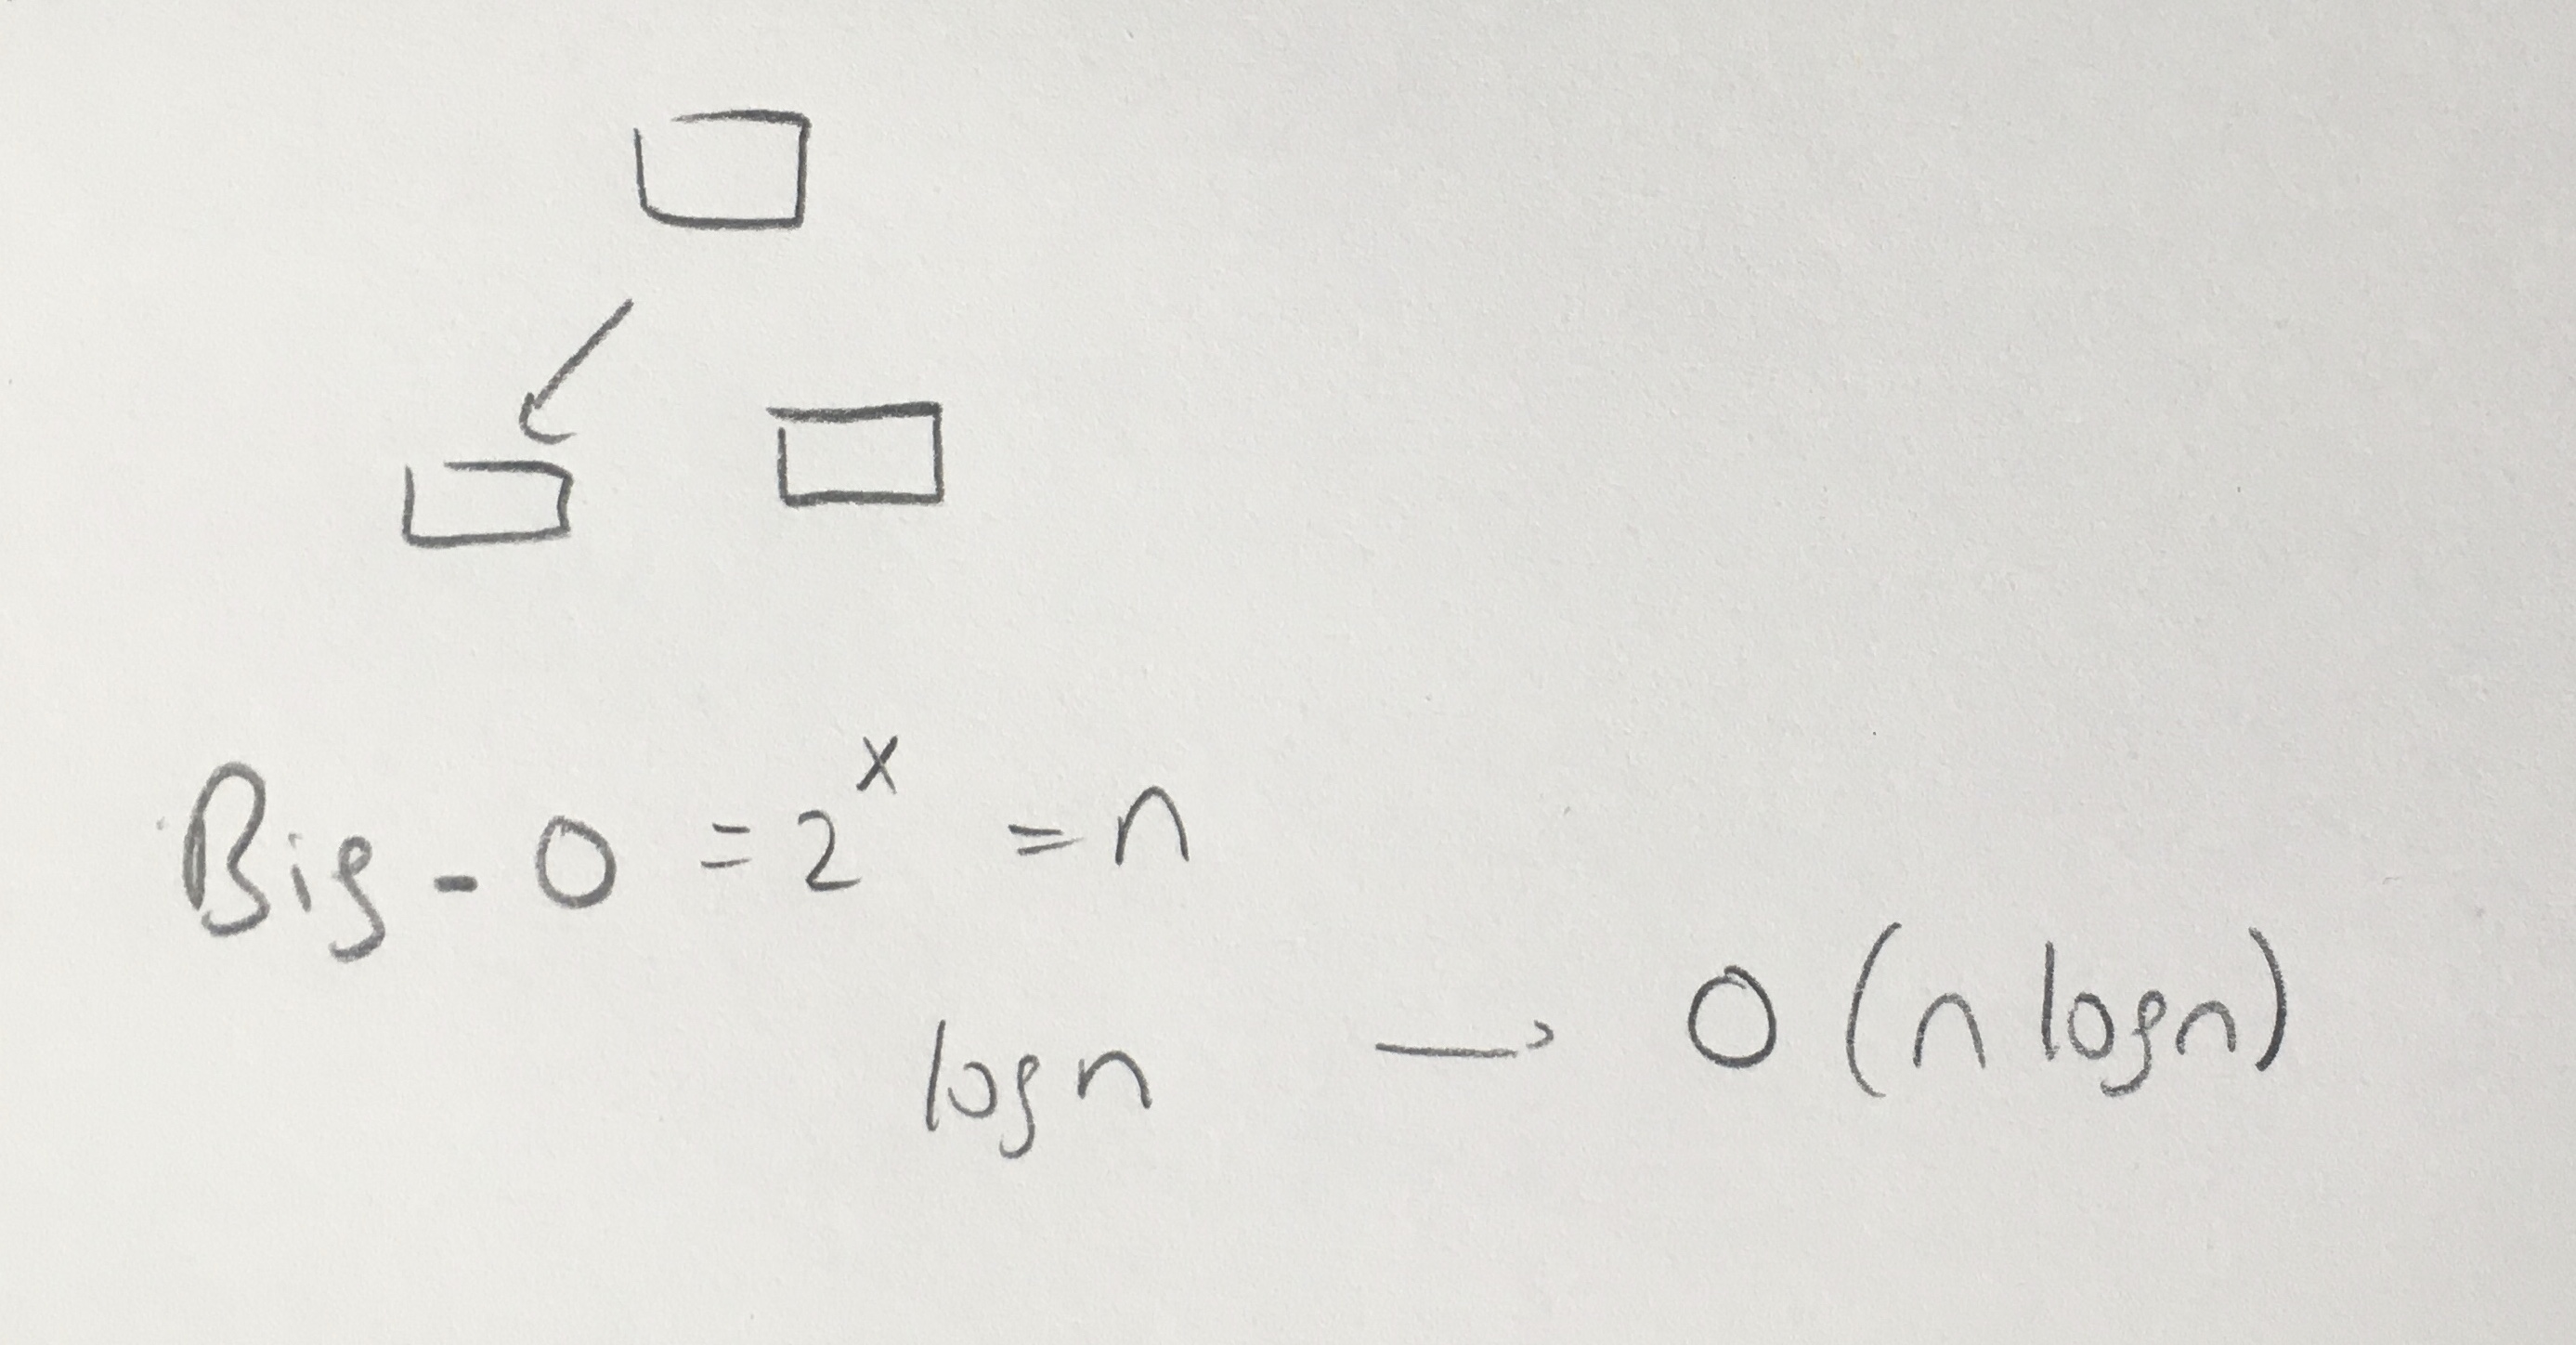 Big-O = 2^x = n
log n → O (n log n)